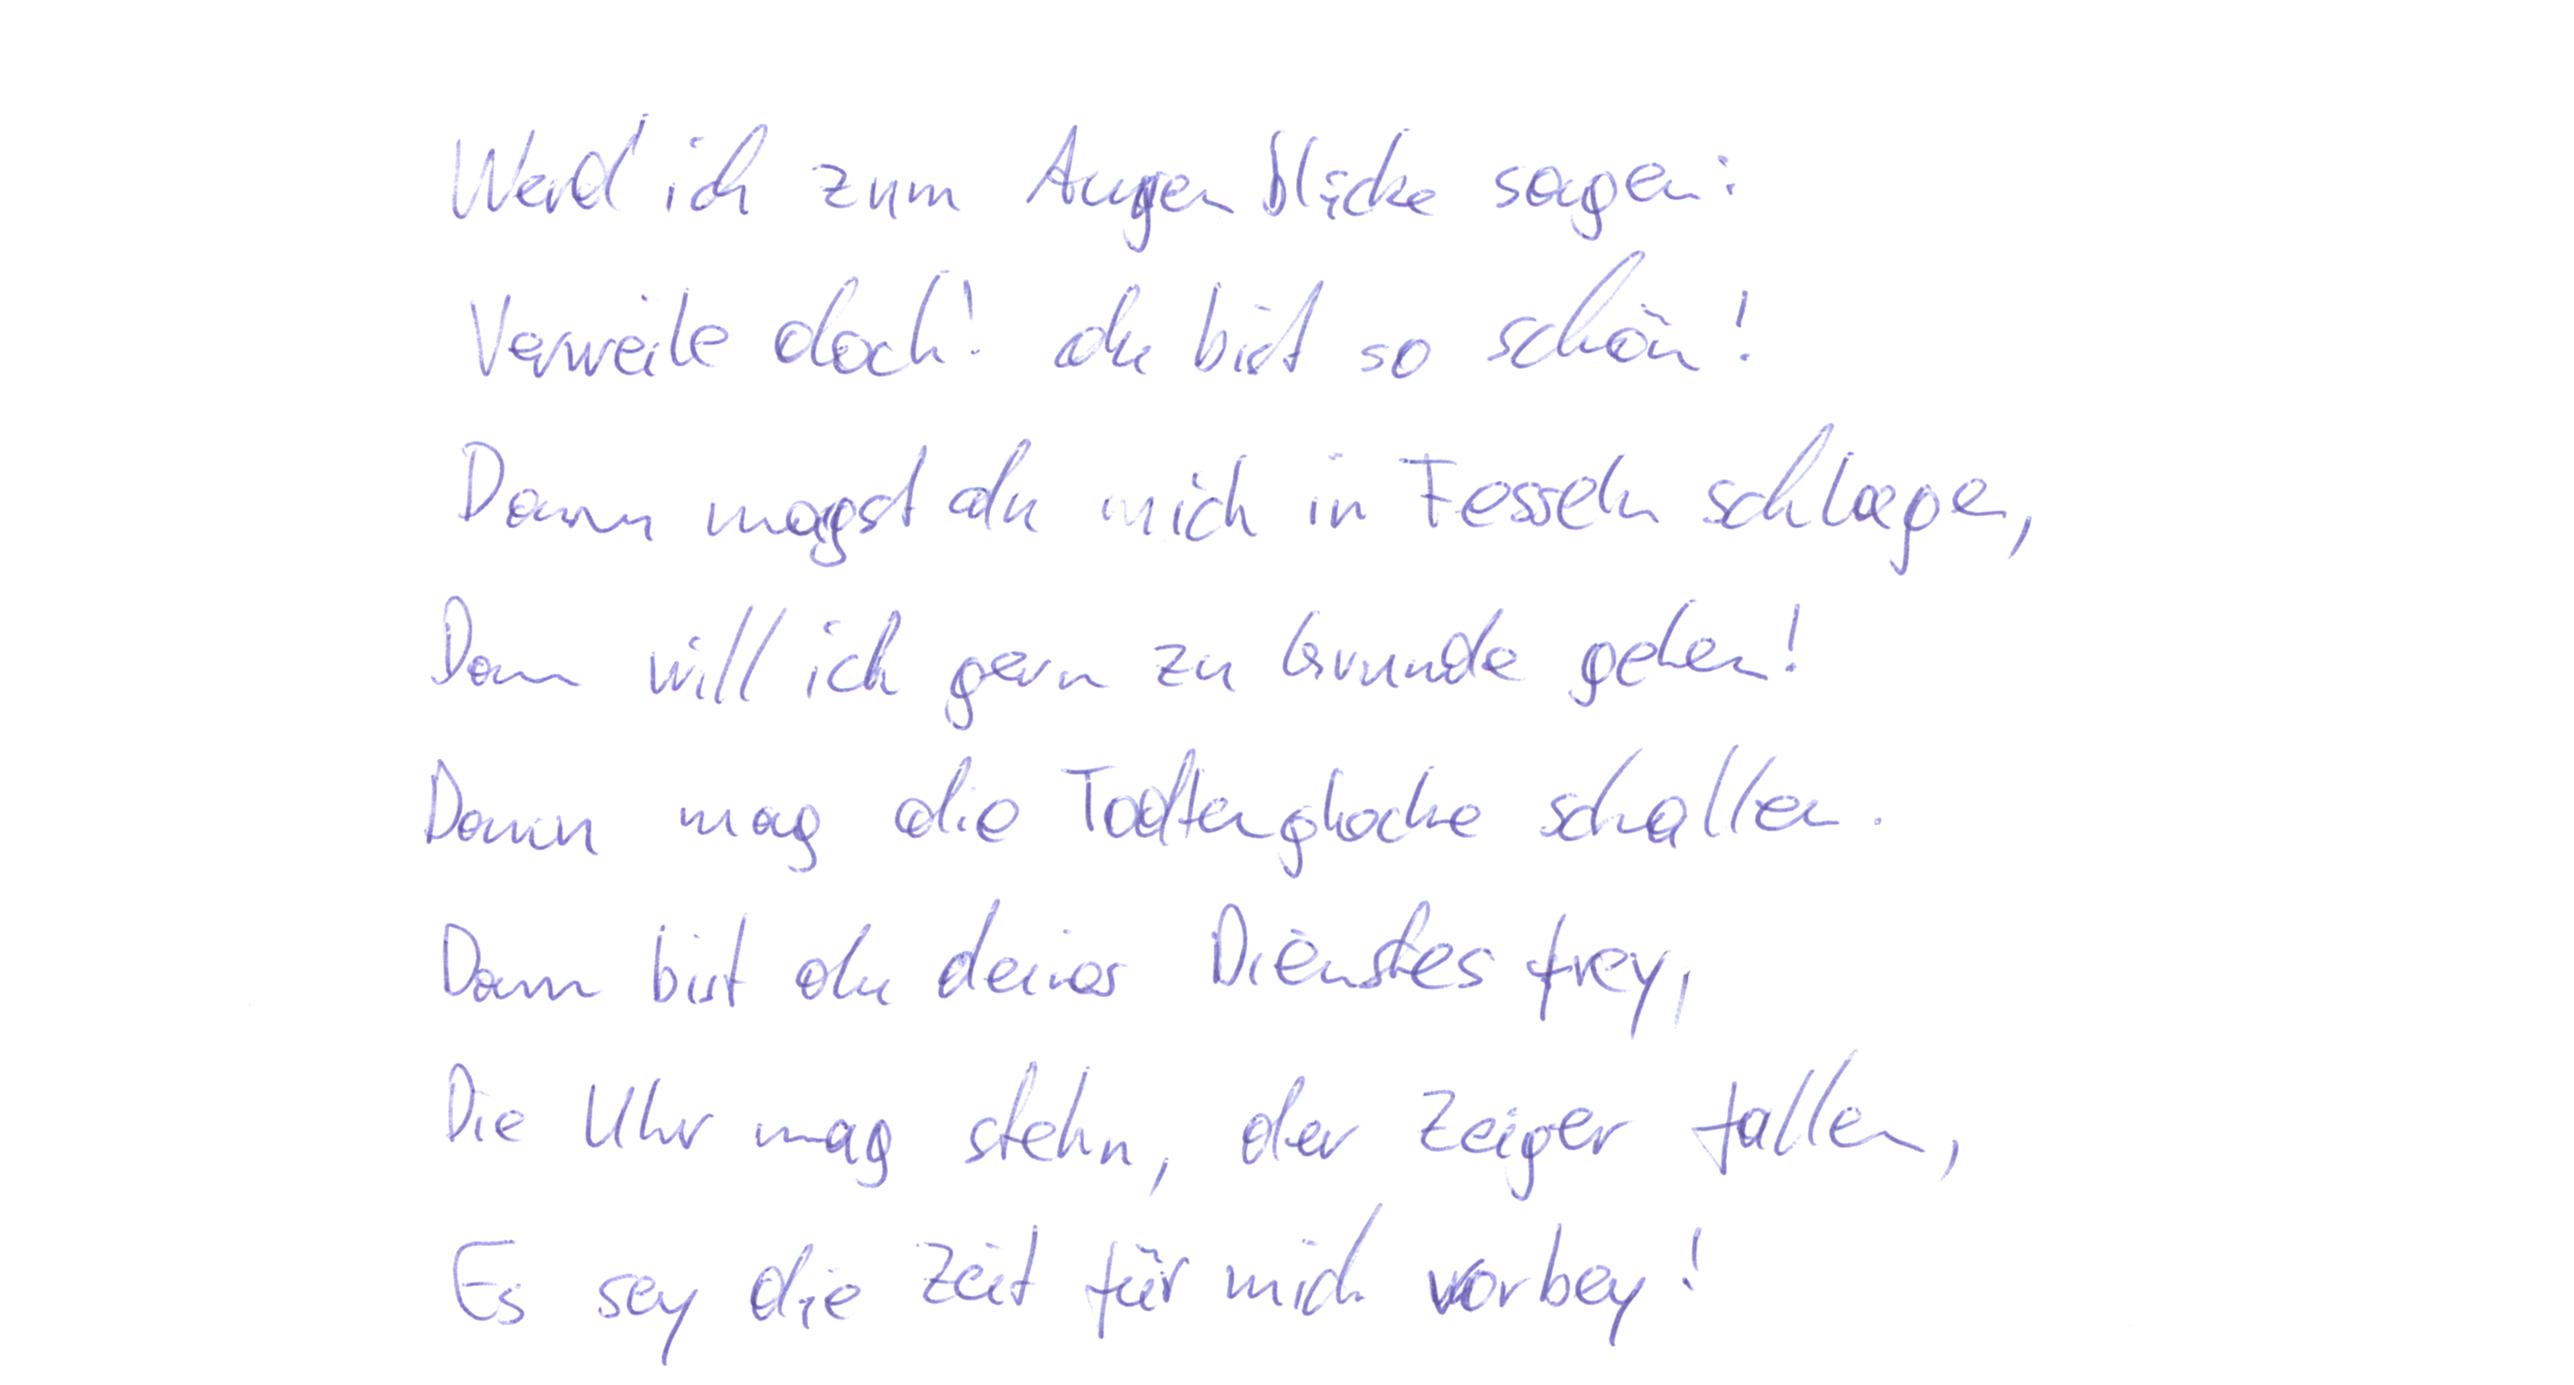 Werd ich zum Augenblicke sagen:
Verweile doch! du bist so schön!
Dann magst du mich in Fesseln schlagen,
Dann will ich gern zu Grunde gehen!
Dann mag die Todtenglocke schallen.
Dann bist du deines Dienstes frey,
Die Uhr mag stehn, der Zeiger fallen,
Es sey die Zeit für mich vorbey!